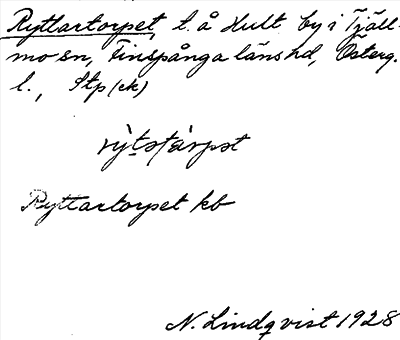 Ryttartorpet, t. å Hult by i Tjäll-
mo sn, Finspånga läns hd, Österg.
l., Stp (ek)
Ryttartorpet kb
N. Lindqvist 1928